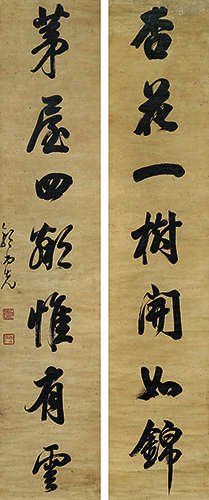 杏花一樹開如錦
茅屋四鄰惟有雲